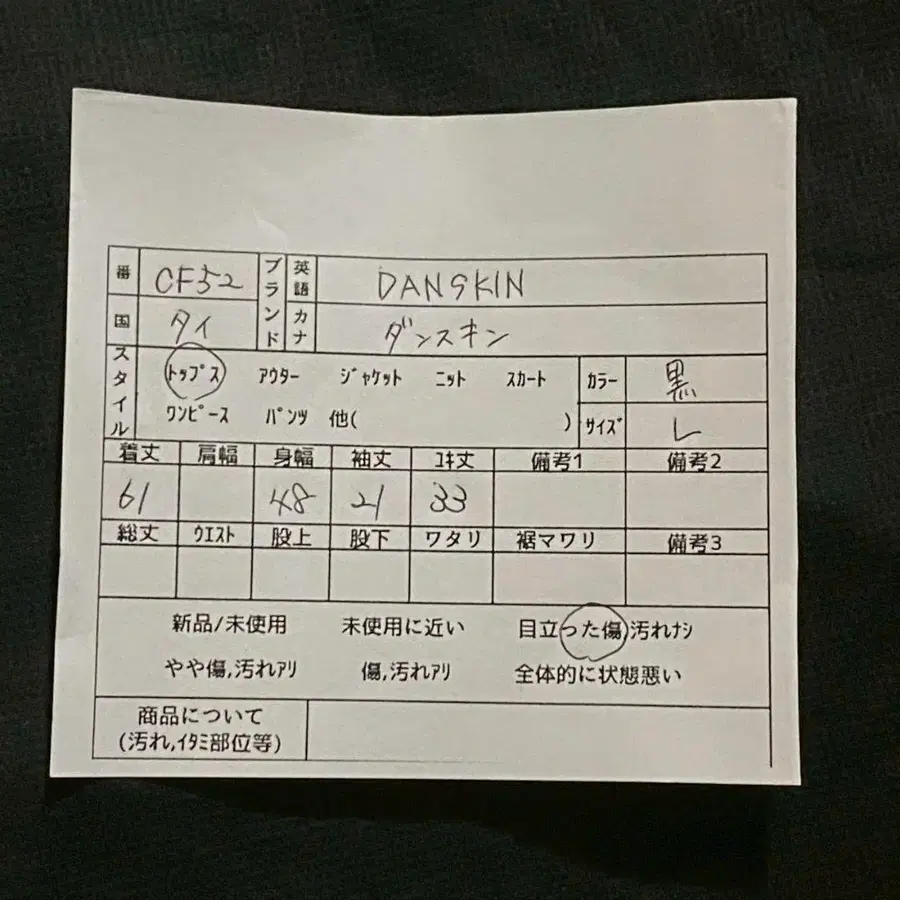 番 CF52 ブランド 英語 DANSKIN
国 タイ カナ ダンスキン
スタイル トップス アウター ジャケット ニット スカート カラー 黒
ワンピース パンツ 他( ) サイズ L
着丈 肩幅 身幅 袖丈 ユキ丈 備考1 備考2
61 48 21 33
総丈 ウエスト 股上 股下 ワタリ 裾マワリ 備考3
新品/未使用 未使用に近い 目立った傷,汚れナシ
やや傷,汚れアリ 傷,汚れアリ 全体的に状態悪い
商品について
(汚れ,イタミ部位等)